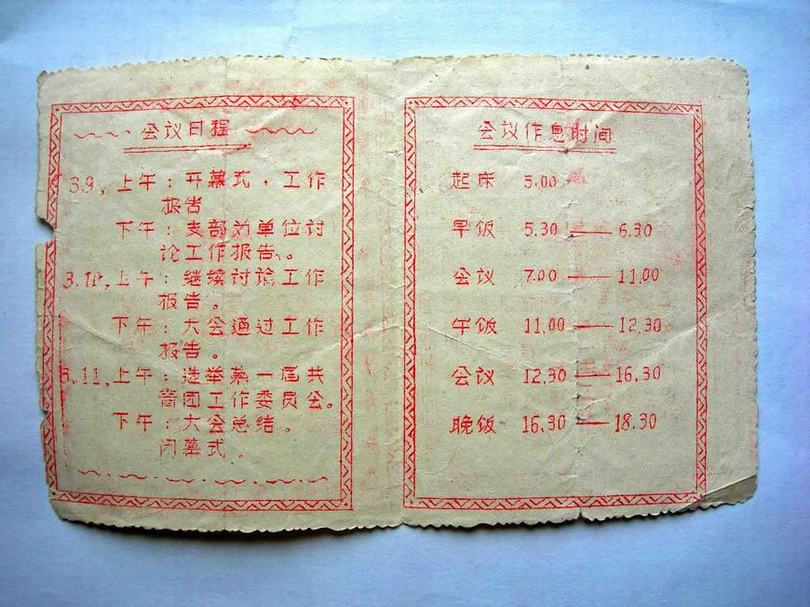 会议日程
3.9，上午：开幕式，工作
报告
下午：支部为单位讨
论工作报告。
3.10，上午：继续讨论工作
报告。
下午：大会通过工作
报告。
3.11，上午：选举第一届共
青团工作委员会。
下午：大会总结。
闭幕式。
会议作息时间
起床 5.00
早饭 5.30——6.30
会议 7.00——11.00
午饭 11.00——12.30
会议 12.30——16.30
晚饭 16.30——18.30